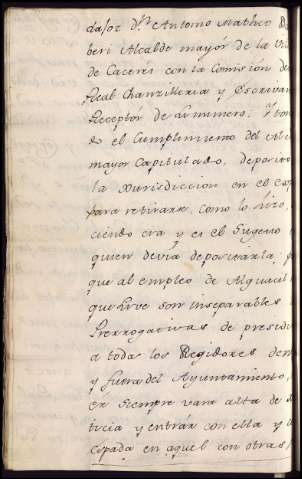 dador Dn Antonio Matheo B
beri Alcalde mayor de la Vi
de Caceres con la Comision de
Real Chanzilleria y Escrivan
Receptor de su numero, Y
do el Cumplimiento del
mayor Capitulado, deposito
la Jurisdiccion en el
para retirarse, como lo hizo,
ciendo era y es el Eugenio
quien devia depositarla, p
que al empleo de Alguacil
que sirve son inseparables
Prerrogativas de presidi
a todos los Regidores den
y fuera del Ayuntamiento,
er siempre vara alta de
ticia y entrar con ella y
espada en aquel con otras,